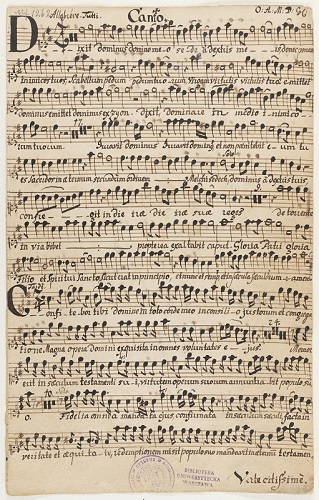 Allegro Tutti. Canto. O. A. M. D. G.
Dixit dominus domino meo sede a dextris meis donec ponam
inimicos tuos, scabellum pedum pedum tuorum, virgam virtutis virtutis tuae emittet
dominus emittet dominus ex syon. dixit, dominare in medio inimico
rum tuorum. Juravit dominus Juravit dominus et non penitebit eum tu
es sacerdos in aeternum secundum ordinem Melchisedech, dominus a dextris tuis,
confre git in die irae die irae suae reges de torrente
in via bibet propterea exaltabit caput. Gloria Patri gloria
Filio et Spiritui Sancto sicut erat in principio et nunc et semper et in saecula saeculorum amen
Tutti
Confitebor tibi domine in toto corde meo in consilio justorum et congrega
tione. Magna opera domini exquisita in omnes voluntates ejus. Memor
erit in saeculum testamenti sui, virtutem operum suorum annuntiabit populo su
o. Fidelia omnia mandata ejus, confirmata in saeculum saeculi, facta in
veritate et aequitate, redemptionem misit populo suo mandavit in aeternum testamen,
Verte citissime.
BIBLIOTEKA
UNIWERSYTECKA
WARSZAWA